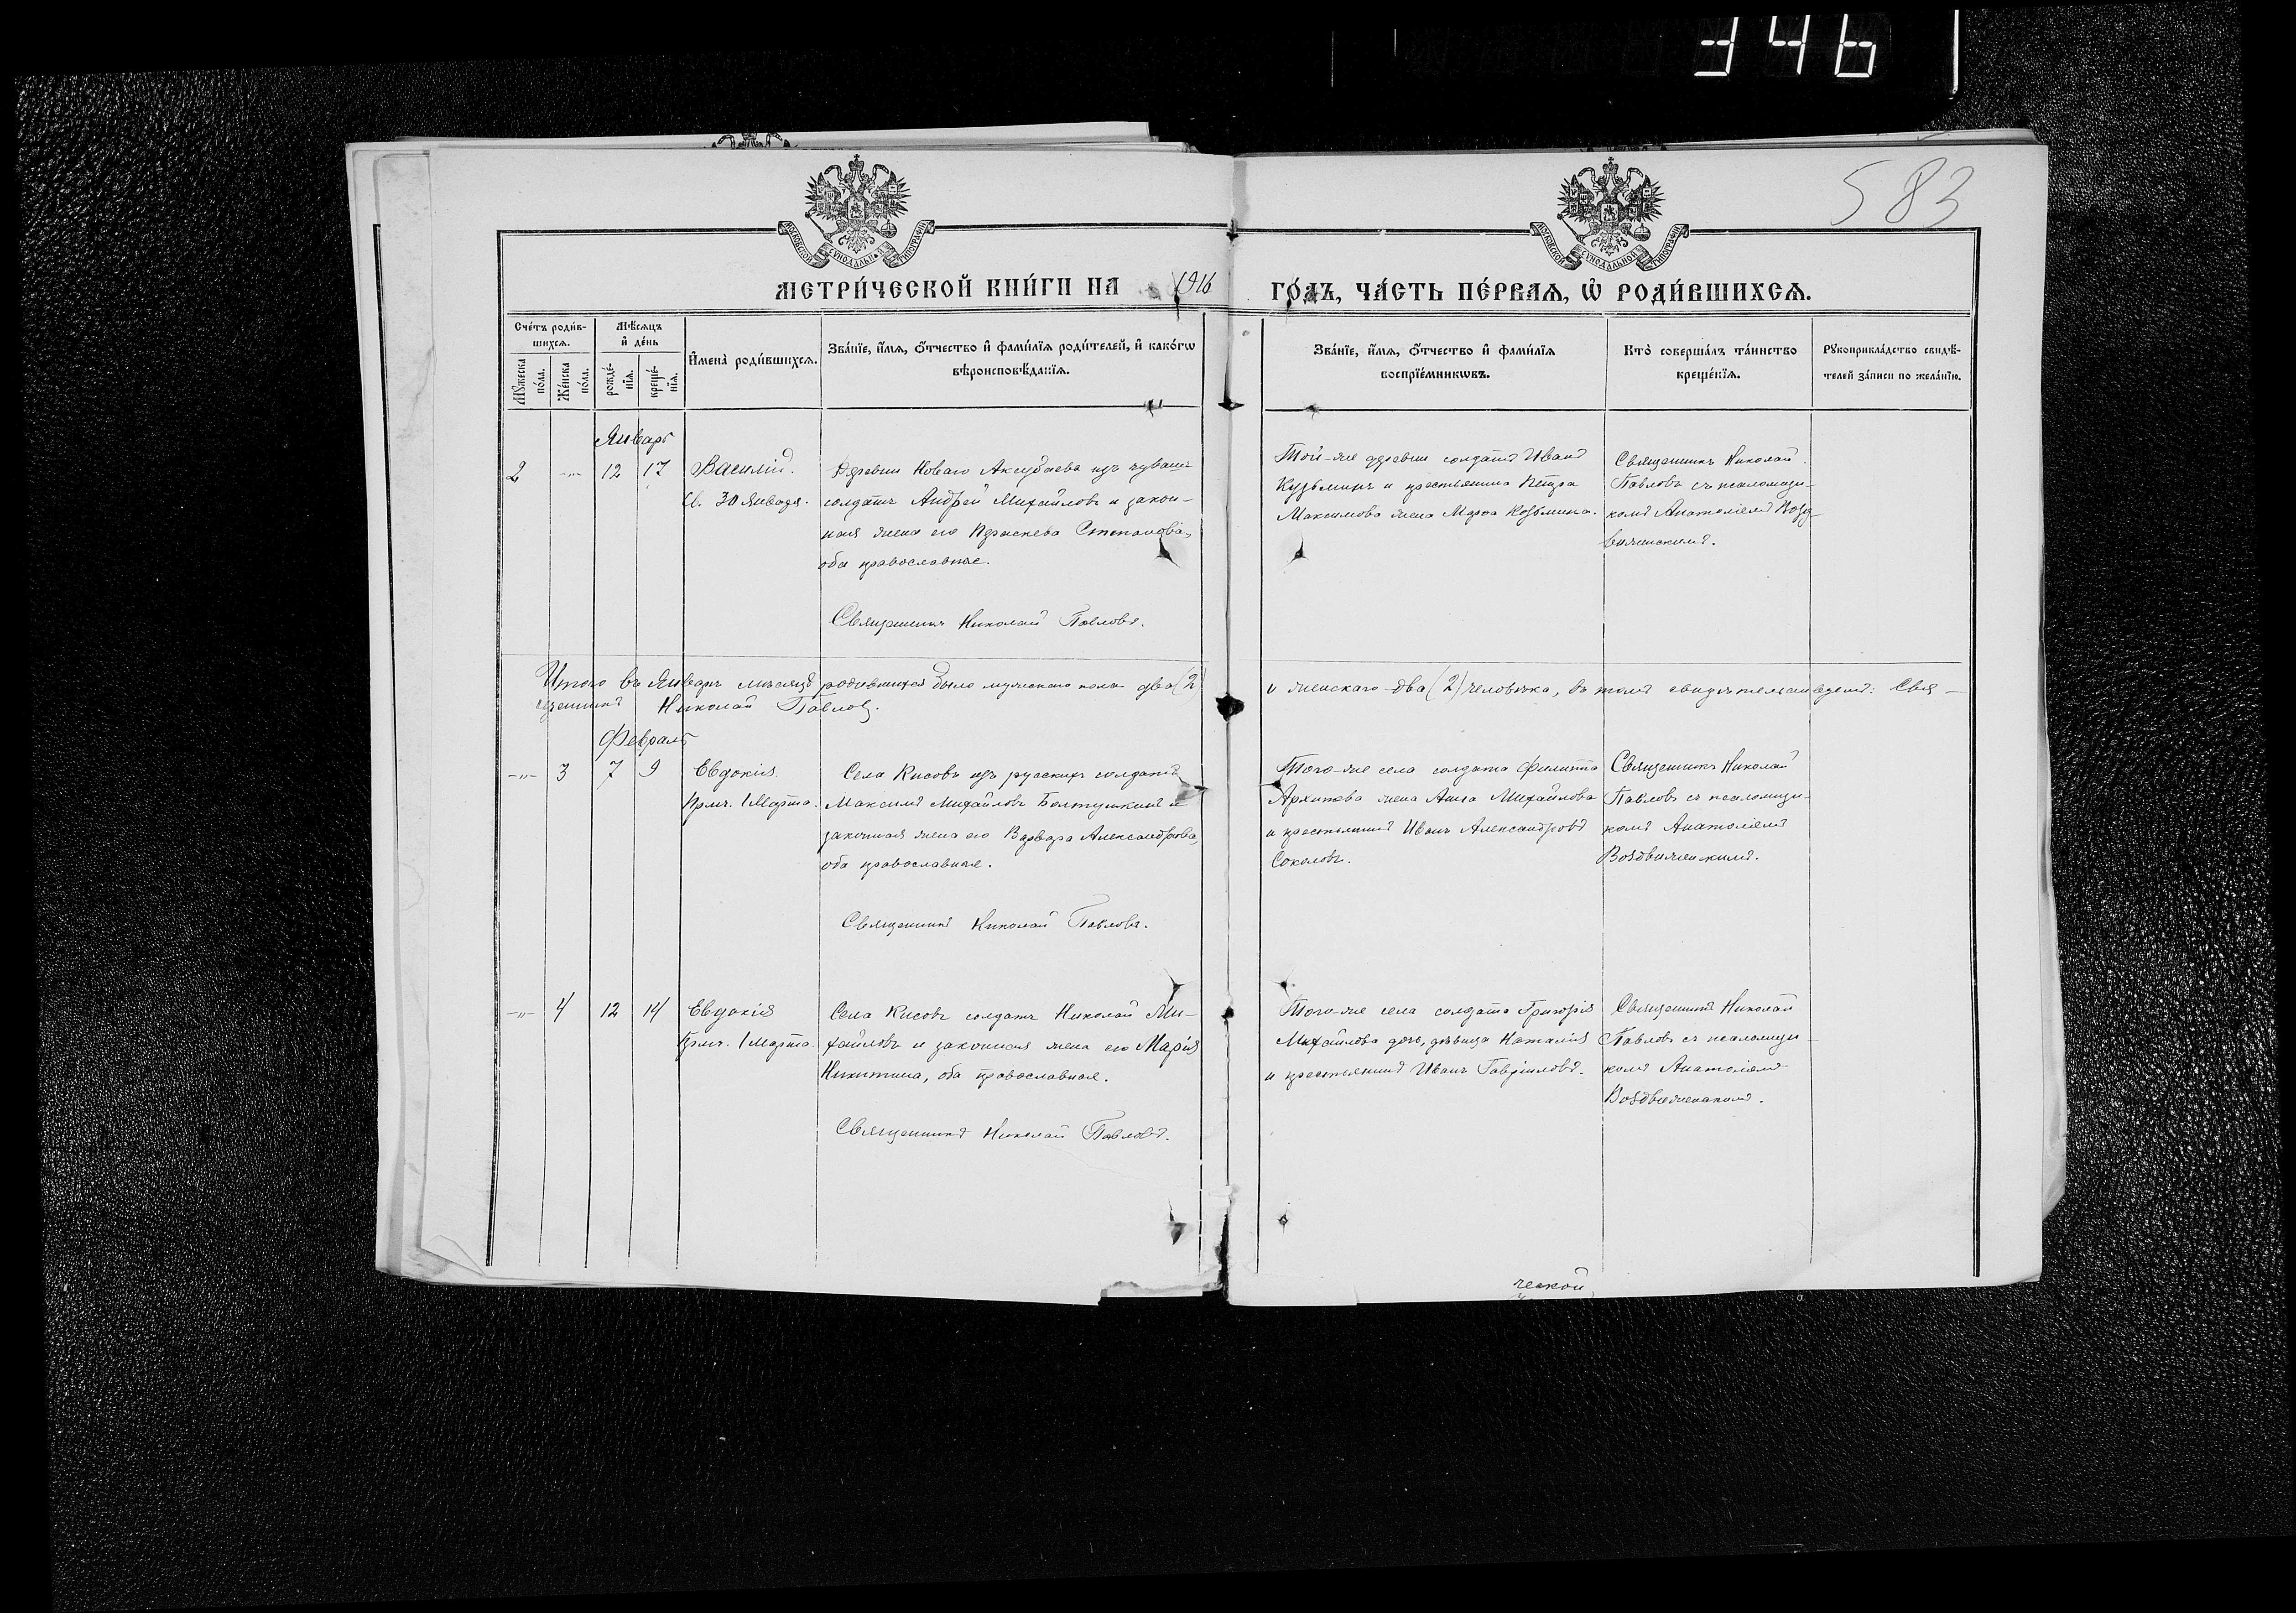 346
583
МОСКОВСКОЙ СУНОДАЛЬНОЙ ТИПОГРАФІИ
МОСКОВСКОЙ СУНОДАЛЬНОЙ ТИПОГРАФІИ
МЕТРИ́ЧЕСКОЙ КНИ́ГИ НА 1916 ГО́ДЪ, ЧА́СТЬ ПЕ́РВАЯ, Ѡ РОДИ́ВШИХСЯ.
Сче́тъ роди́в-
шихся.
Мꙋ́жеска по́ла.
Же́нска по́ла.
Мѣ́сяцъ
и҆ де́нь
рожде́-
нїя.
креще́-
нїя.
И҆мена̀ роди́вшихся.
Зва́нїе, и҆́мя, ѻ҆́тчество и҆ фами́лїя роди́телей, и҆ како́гѡ
вѣроисповѣ́данїя.
Зва́нїе, и҆́мя, ѻ҆́тчество и҆ фами́лїя
воспрїе́мникѡвъ.
Кто̀ соверша́лъ та́инство
креще́нїя.
Рꙋкоприкла́дство свидѣ́-
телей за́писи по жела́нїю.
Январь
2 -"- 12 17
Василій.
Св. 30 Января.
Деревни Новаго Аксубаева изъ чувашъ
солдатъ Андрей Михайловъ и закон-
ная жена его Параскева Степанова,
оба православные.
Священникъ Николай Павловъ.
Той-же деревни солдатъ Иванъ
Кузьминъ и крестьянина Петра
Максимова жена Марѳа Козьмина.
Священникъ Николай
Павловъ съ псаломщи-
комъ Анатоліемъ Возд-
виженскимъ.
Итого въ Январѣ мѣсяцѣ родившихся было мужескаго пола два (2) и женскаго два (2) человѣка, въ томъ свидѣтельствуемъ: Свя-
щенникъ Николай Павловъ.
Февраль
-"- 3 7 9
Евдокія
Прмч. 1 Марта.
Села Кисовъ изъ русскихъ солдатъ
Максимъ Михайловъ Болтушкинъ и
законная жена его Варвара Александрова,
оба православные.
Священникъ Николай Павловъ.
Того-же села солдата Филиппа
Архипова жена Анна Михайлова
и крестьянинъ Иванъ Александровъ
Соколовъ.
Священникъ Николай
Павловъ съ псаломщи-
комъ Анатоліемъ
Воздвиженскимъ.
-"- 4 12 14
Евдокія
Прмч. 1 Марта.
Села Кисовъ солдатъ Николай Ми-
хайловъ и законная жена его Марія
Никитина, оба православные.
Священникъ Николай Павловъ.
Того-же села солдата Григорія
Михайлова дочь, дѣвица Наталія
и крестьянинъ Иванъ Гавриловъ.
Священникъ Николай
Павловъ съ псаломщи-
комъ Анатоліемъ
Воздвиженскимъ.
ческой